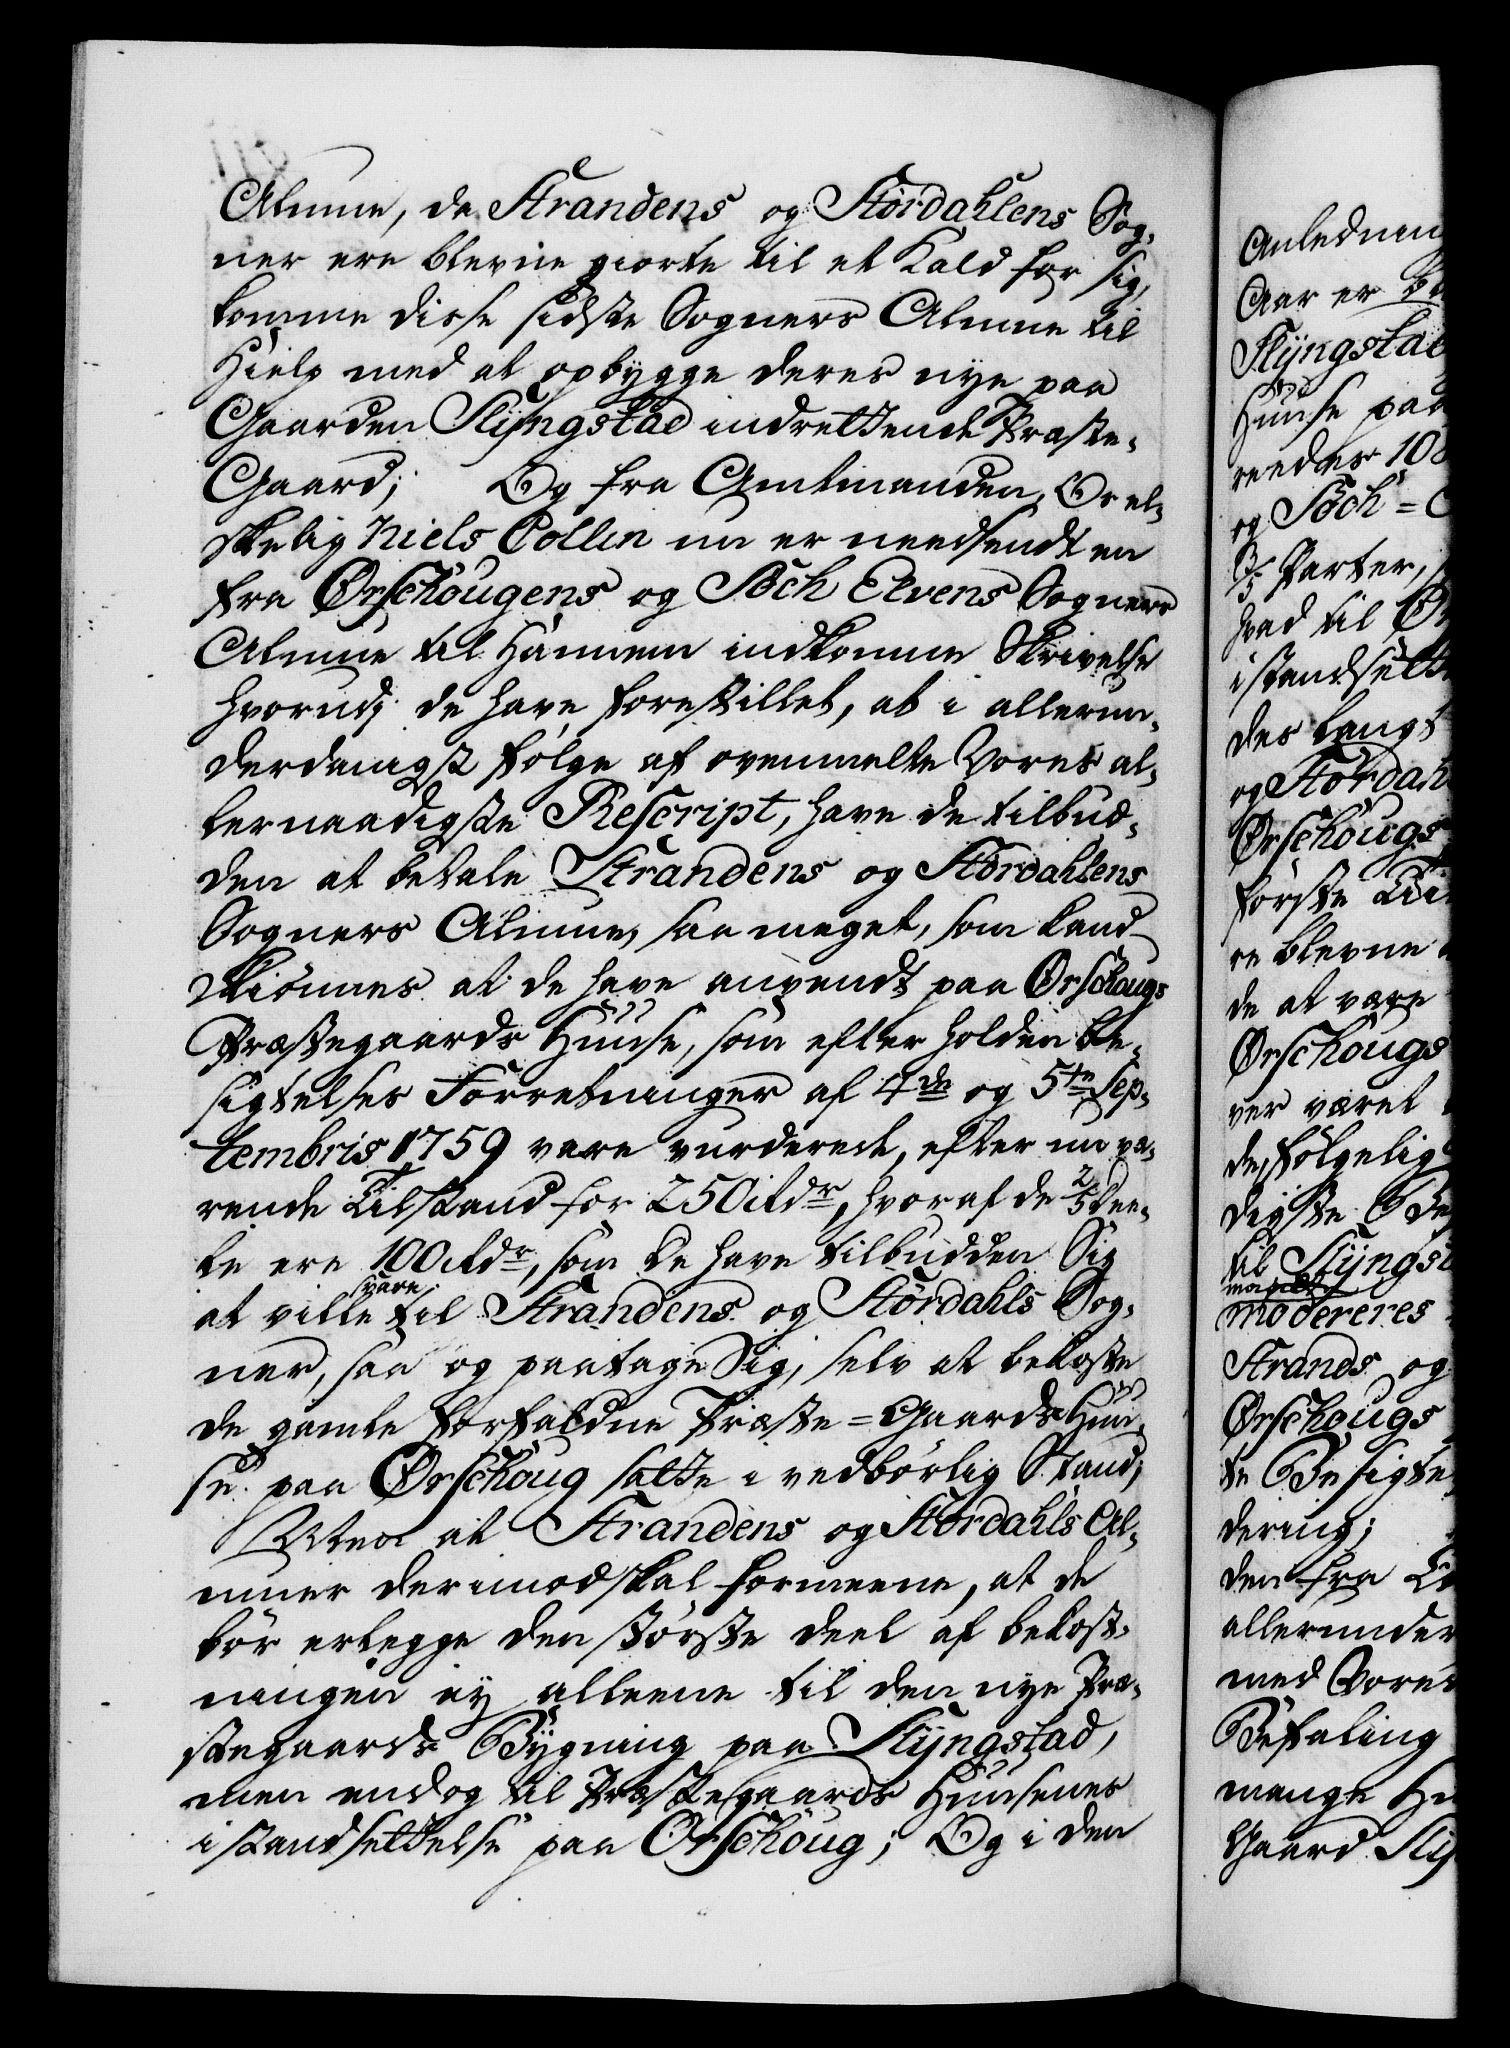 Almue, da Strandens og Stordahlens Sog-
ner ere blevne giorte til et Kald for sig,
komme disse sidste Sogners Almue til
Hielp med at opbygge deres nye paa
Gaarden Slÿngstad indrettende Præste-
Gaard; Og fra Amtmanden, Os el-
skelig Niels Collin nu er neddsendt en
fra Ørschougens og Söch Elvens Sogners
Almue til Hannem indkomne Skrivelse
hvorudj de have forestillet, at i allerun-
derdanigst følge af ovenmelte Vores al-
lernaadigste Rescript, have de tilbud-
den at betale Strandens og Stordahlens
Sogners Almue, saa meget, som kand
skiönnes at de have anvendt paa Ørschougs
Præstegaards Huuse, som efter holden be-
sigtelses Forretninger af 4de og 5te Sep-
tembris 1759 vare vurderede, efter nu væ-
rende Tilstand for 250 rdr, hvoraf de 2/5 dee-
le ere 100 rdr, som de have tilbudden Sig
at ville svare til Strandens og Stördahls Sog-
ner, saa og paatage Sig, selv at bekoste
de gamle forfaldne Præste=Gaards Huu-
se paa Ørschoug satte i vedbörlig Stand;
Men at Strandens og Stördahls Al-
muer derimod skal formeene, at de
bör erlegge den störste deel af bekost-
ningen ej alleene til den nye Præ-
stegaards Bÿgning paa Slÿngstad,
men endog til Præstegaards Huusenes
istandsettelse paa Ørschoug; Og i den
Anledning
Aar er
Slÿngstad
Huuse paa
reedes 10
og Söch=
3/5 Parter,
hvad til
istandsætte
des langt
og Stördah
Ørschougs
förste
re blevne
de at være
Ørschougs
ver været
de, fölgelig
digste Be
til Slÿngst
modereres
Strands og
Ørschougs
te Besigte
dering;
den fra
allerunder
med Vores
Befaling
mange Hu
Gaard Slÿ